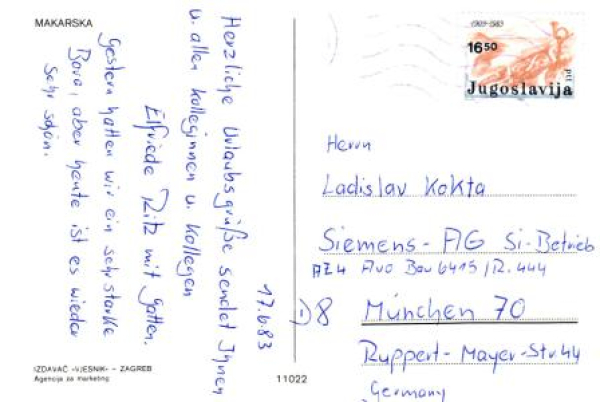 MAKARSKA
17.6.83
Herzliche Urlaubsgrüße sendet Ihnen
u. allen Kolleginnen u. Kollegen
Elfriede Ritz mit Gatten.
Gestern hatten wir ein sehr starke
Bora, aber heute ist es wieder
sehr schön.
IZDAVAČ «VJESNIK» – ZAGREB
Agencija za marketing
11022
1903-1983
16 50
ptt
Jugoslavija
Herrn
Ladislav Kokta
Siemens-AG Si-Betrieb
AZ4 Avo Bau 6415/R.444
D 8 München 70
Ruppert-Mayer-Str. 44
Germany